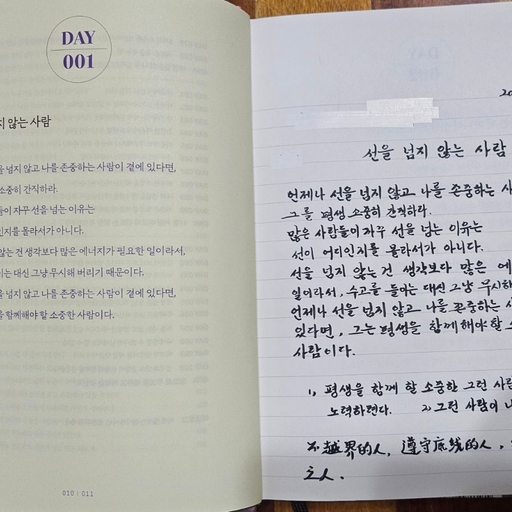 DAY
001
않는 사람
넘지 않고 나를 존중하는 사람이 곁에 있다면,
소중히 간직하라.
자꾸 선을 넘는 이유는
몰라서가 아니다.
않는 건 생각보다 많은 에너지가 필요한 일이라서,
대신 그냥 무시해 버리기 때문이다.
넘지 않고 나를 존중하는 사람이 곁에 있다면,
함께해야 할 소중한 사람이다.
010 | 011
선을 넘지 않는 사람
언제나 선을 넘지 않고 나를 존중하는
그를 평생 소중히 간직하라.
많은 사람들이 자꾸 선을 넘는 이유는
선이 어디인지를 몰라서가 아니다.
선을 넘지 않는 건 생각보다 많은
일이라서, 수고를 들이는 대신 그냥 무시해
언제나 선을 넘지 않고 나를 존중하는
있다면, 그는 평생을 함께해야 할
사람이다.
1, 평생을 함께 할 소중한 그런 사람
노력하련다. 2, 그런 사람이
不越界的人, 遵守底线的人,
之人.